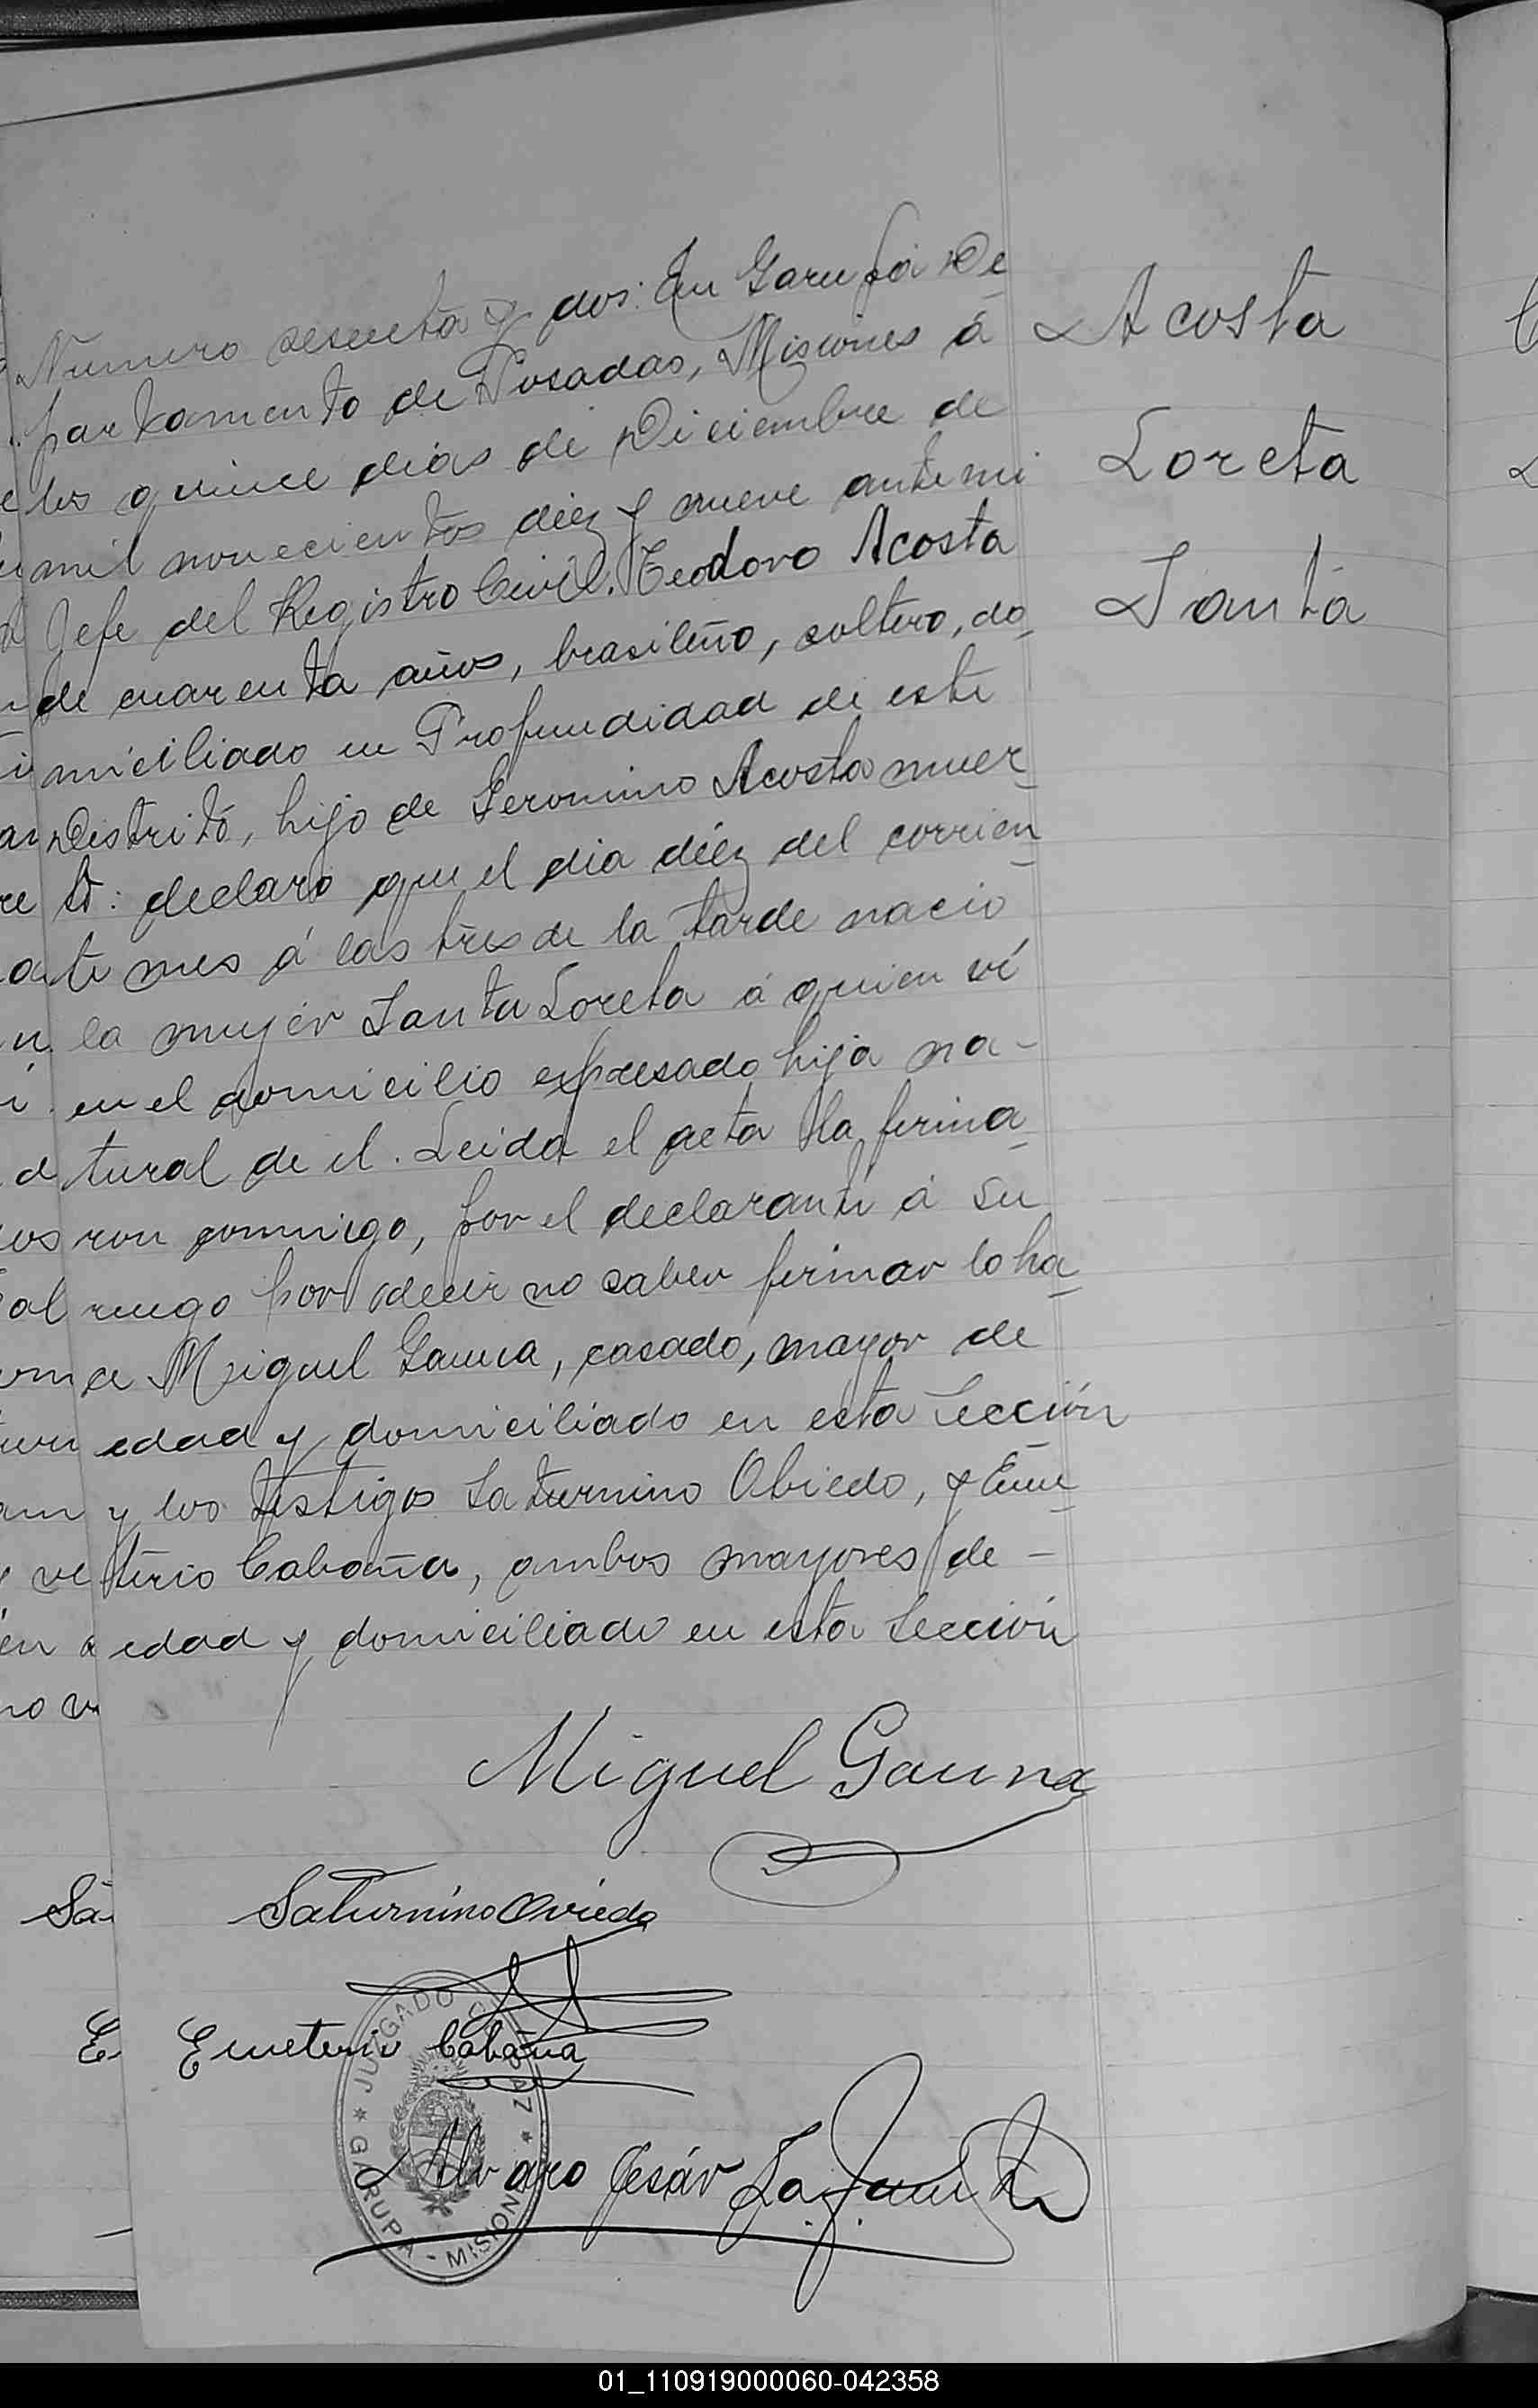 Numero sesenta y dos: En Garupá De
partamento de Posadas, Misiones á
los quince dias de Diciembre de
mil novecientos diéz y nueve ante mi
Jefe del Registro Civil. Teodoro Acosta
de cuarenta años, brasileño, soltero, do
miciliado en Profundidad de este
Distrito, hijo de Geronimo Acosta muer
to: declaro que el dia diéz del corrien
te mes á las tres de la tarde nació
la mujer Santa Loreta á quien ví
en el domicilio expresado hija na-
tural de el. Leida el acta la firma
ron conmigo, por el declarante á su
ruego por decir no saber firmar lo ha
ce Miguel Gauna, casado, mayor de
edad y domiciliado en esta Sección
y los testigos Saturnino Obiedo, y Eme
terio Cabaña, ambos mayores de -
edad y domiciliado en esta Sección
Acosta
Loreta
Santa
Miguel Gauna
Saturnino Oviedo
Emeterio Cabaña
Alvaro Cesár
JUZGADO DE PAZ * GARUPA - MISIONES *
01_110919000060-042358